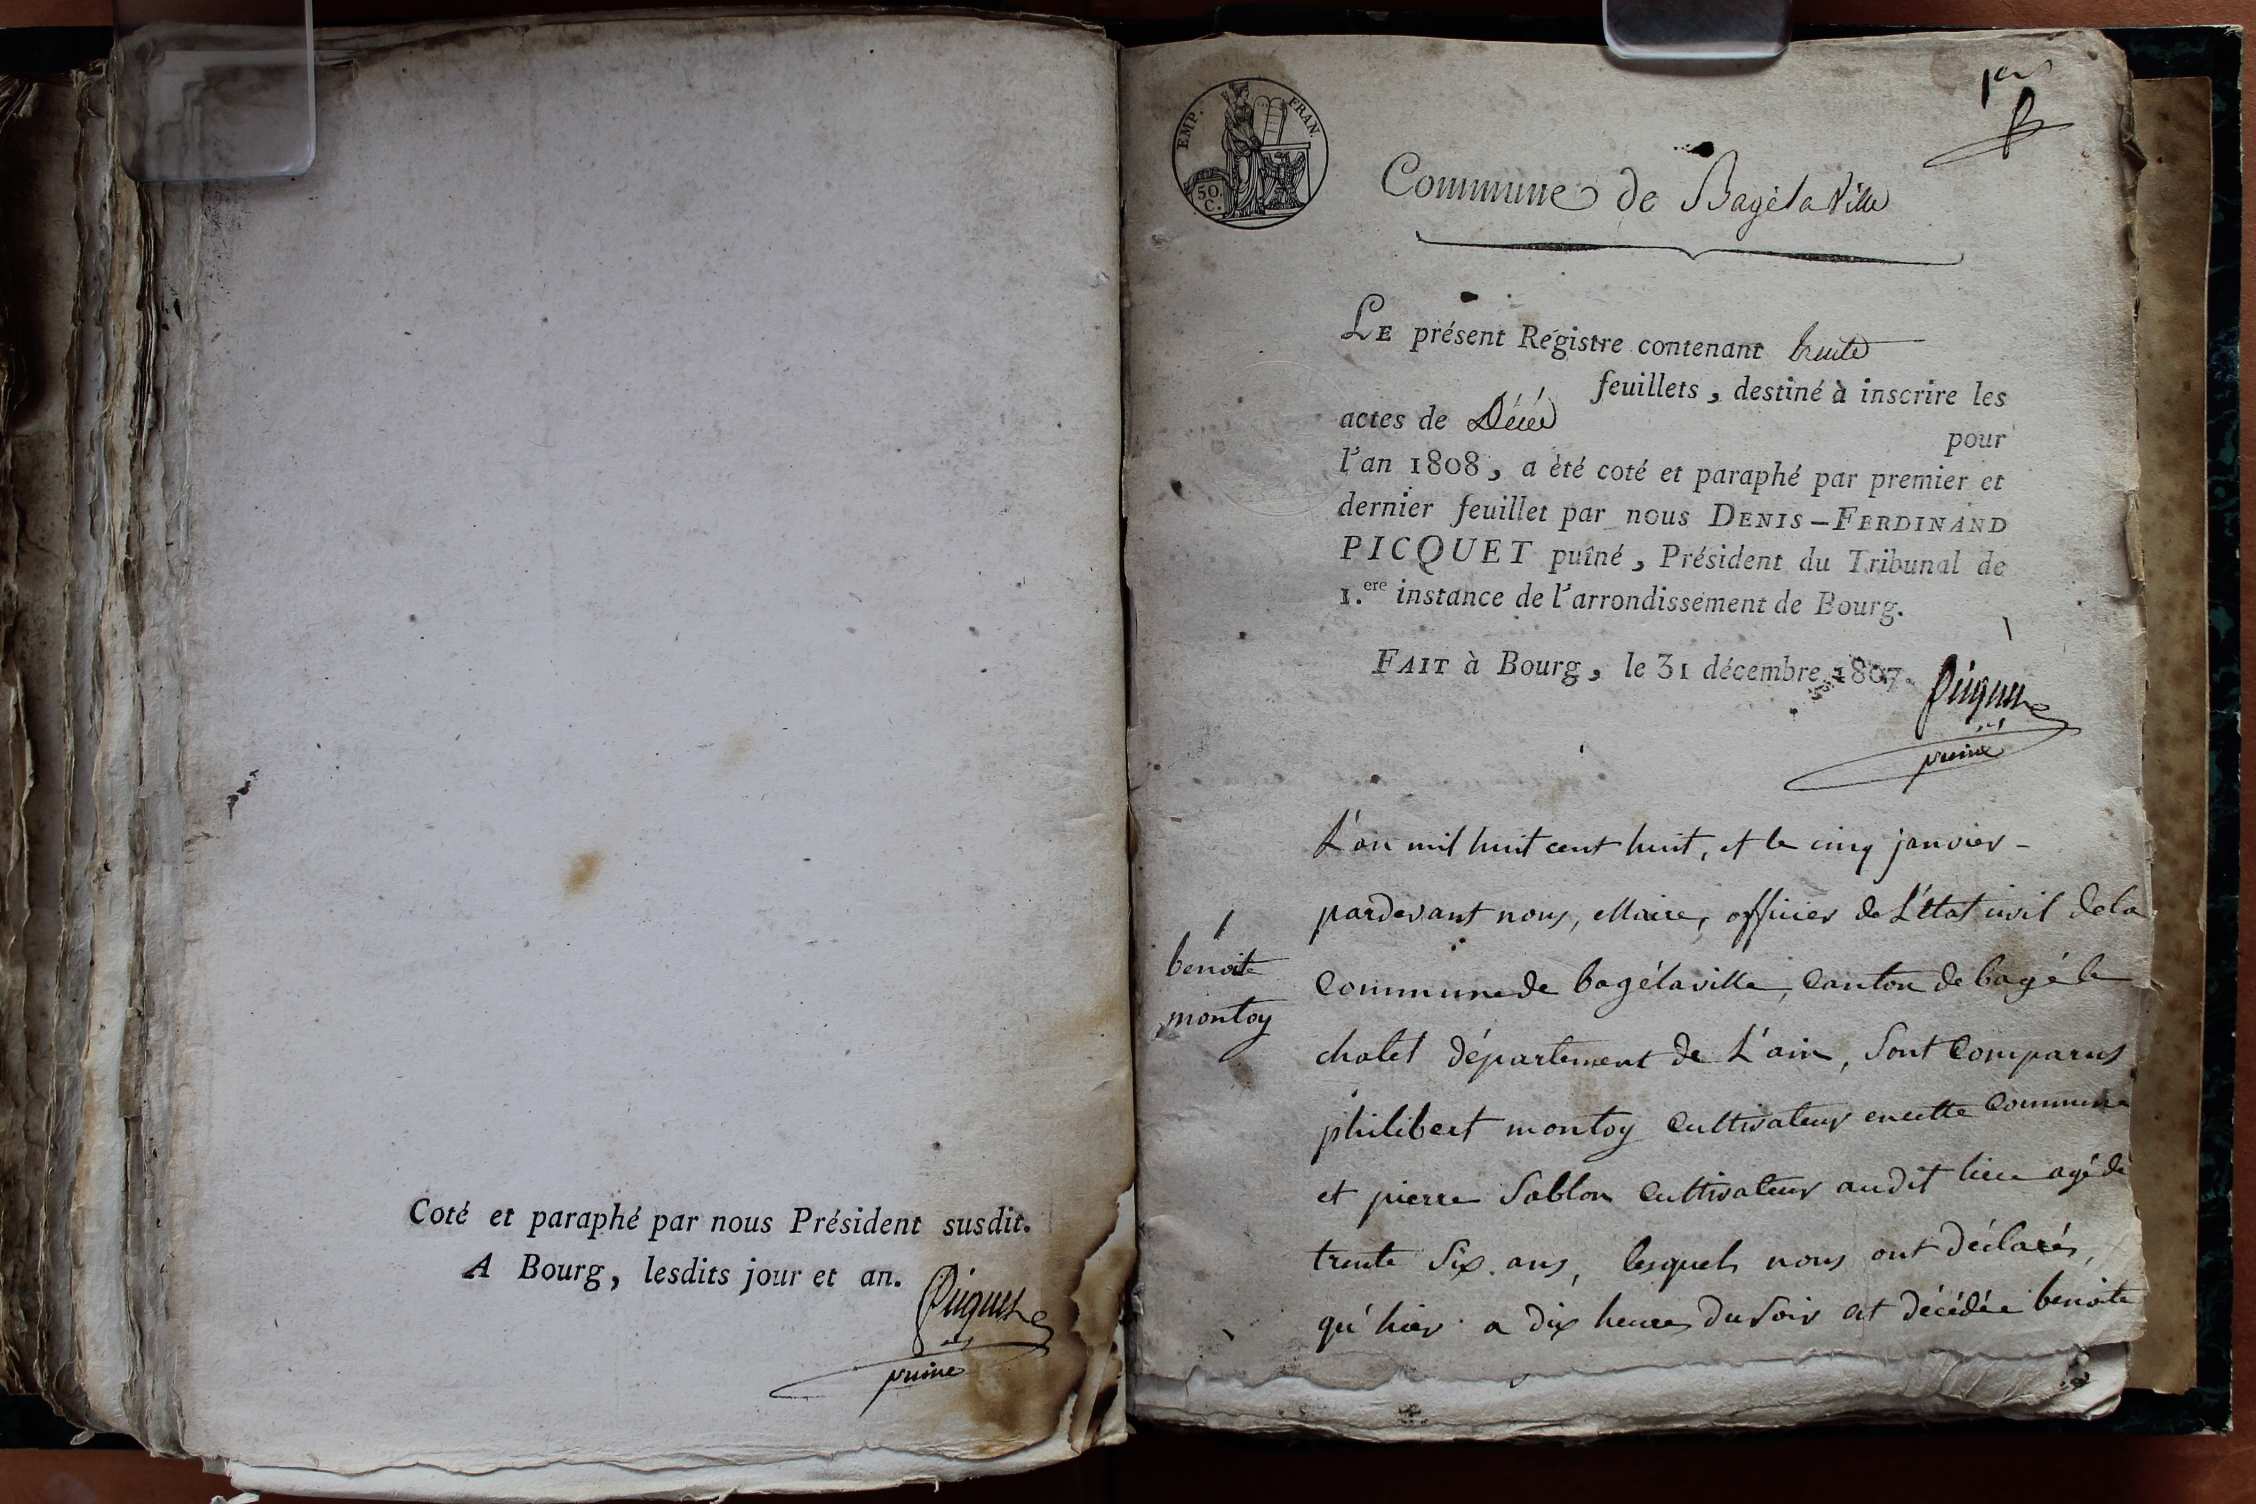 Coté et paraphé par nous Président susdit.
A Bourg, lesdits jour et an.
Picquet
puiné
1er
EMP. FRAN.
50.
C.
Commune de Bagé la Ville
LE présent Régistre contenant trente
feuillets, destiné à inscrire les
actes de Décés
pour
l'an 1808, a été coté et paraphé par premier et
dernier feuillet par nous DENIS-FERDINAND
PICQUET puîné, Président du Tribunal de
1.ere instance de l'arrondissement de Bourg.
FAIT à Bourg, le 31 décembre 1807.
Picquet
puiné
1
benoite
montoy
L'an mil huit cent huit, et le cinq janvier -
pardevant nous, Maire, officier de L'état civil de la
Commune de bagélaville, Canton de bagé le
chatel département de L'ain, Sont Comparus
philibert montoy Cultivateur en cette Commune
et pierre Sablon Cultivateur audit lieu agé de
trente Six ans, lesquels nous ont déclarés,
qu'hier a dix heures du Soir est décédée benoite